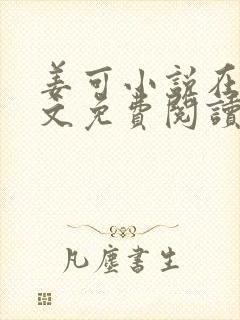 姜可小说在
文免費閱讀
凡塵書生